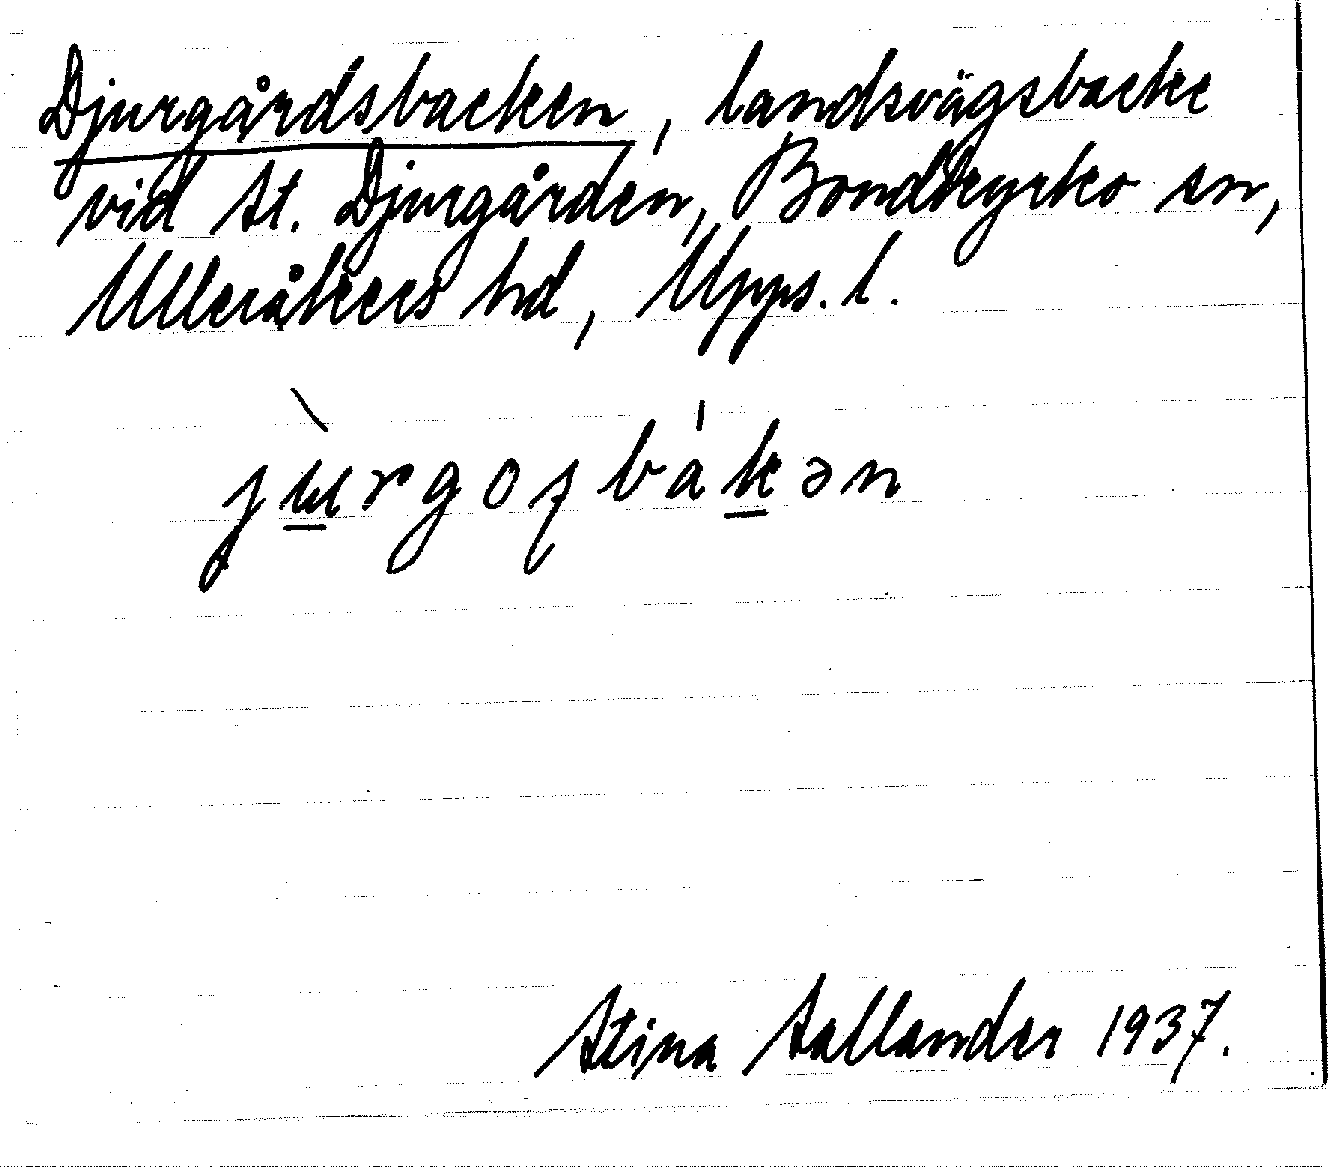 Djurgårdsbacken, landsvägsbacke
vid St. Djurgården, Bondkyrko sn,
Ulleråkers hd, Upps. l.
jɯ̀rgoʂbákən
Stina Sallander 1937.